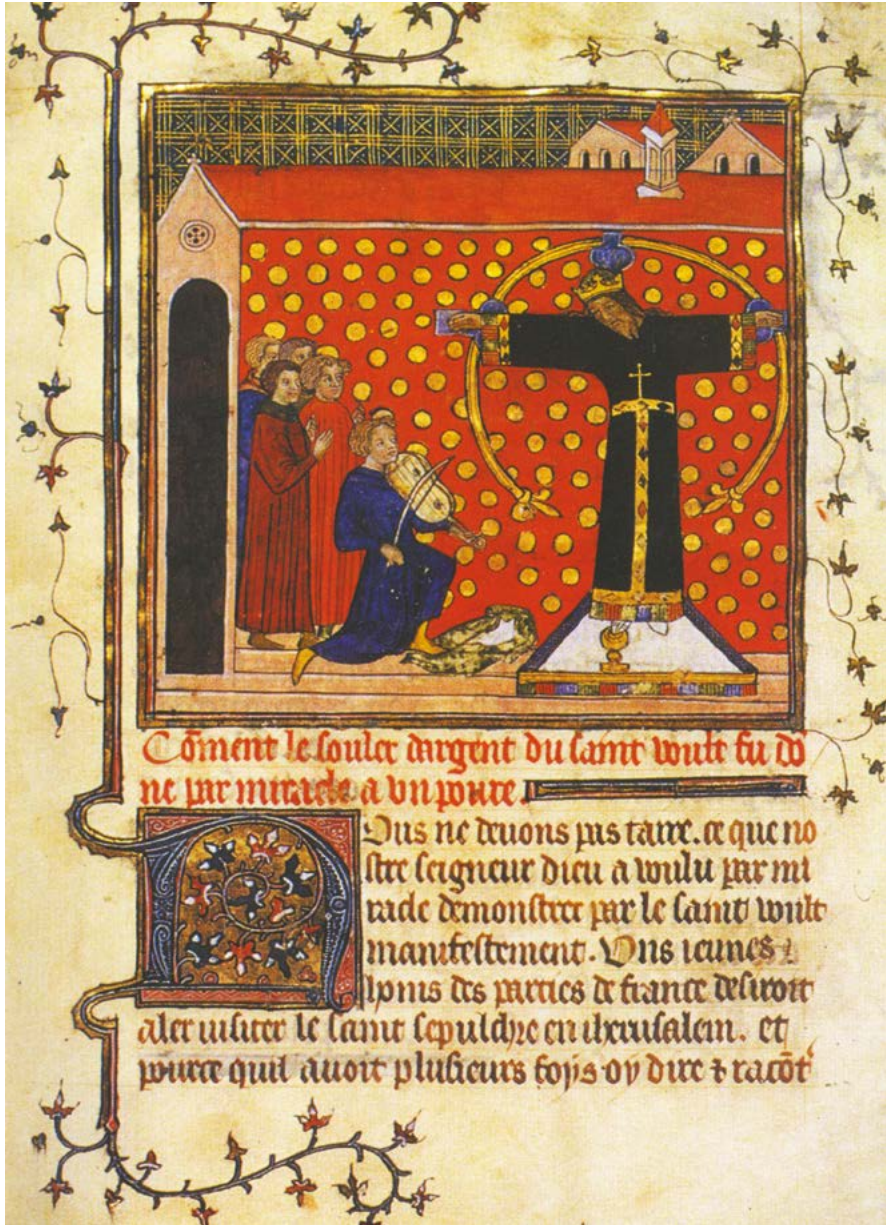 Cōment le souler dargent du saint voult fu dō
ne par miracle a vn poure.
Nous ne deuons pas taire. ce que no
stre seigneur dieu a voulu par mi
racle demonstrer par le saint voult
manifestement. Vns ieunes
homs des parties de france desiroit
aler uisiter le saint sepulchre en iherusalem. et
pource quil auoit plusieurs foys oy dire ⁊ racōt